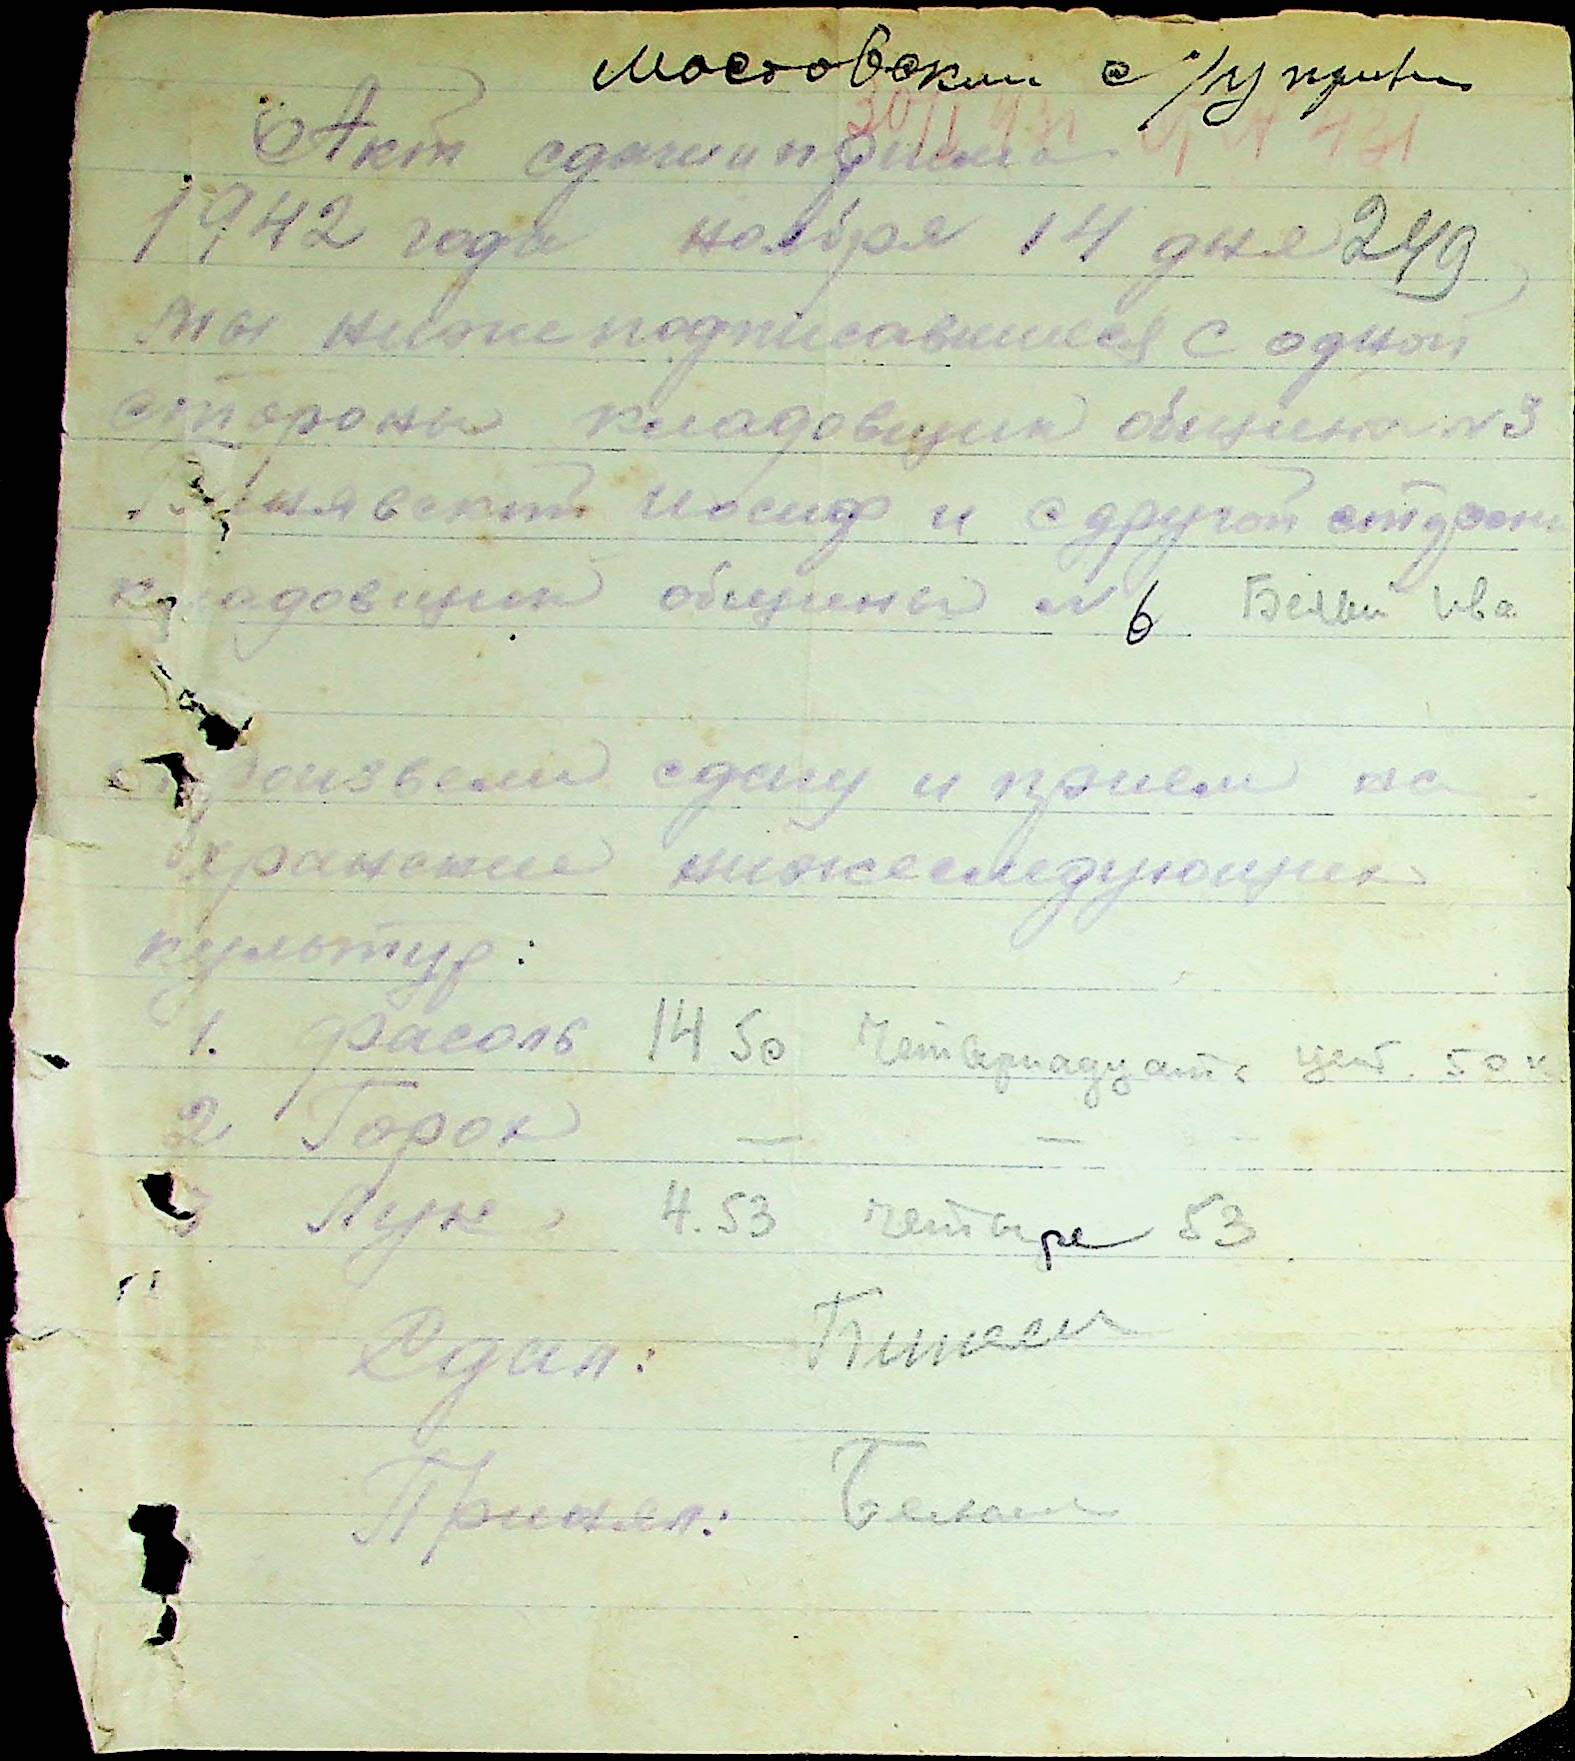 Мостовский с/управ
Акт сдачи и приема
1942 года ноября 14 дня 249
мы нижеподписавшиеся с одной
стороны кладовщик общины №3
Иосиф и с другой стороны
кладовщик общины № 6 Белый Ива
произвели сдачу и прием на
хранение нижеследующих
культур:
1. фасоль 14 50 Четырнадцать цет. 50 к
2 Горох — —
3 Лук, 4.53 четыре 53
Сдал:
Принял: